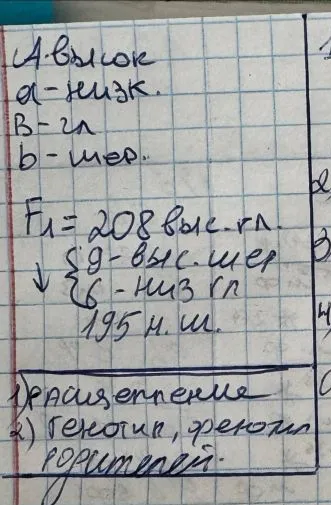 А-высок
а-низк.
В-гл
b-шер.
F1=208 выс. гл.
9-выс. шер
6-низ гл
195 н. ш.
1) расщепление
2) Генотип, фенотип
родителей.